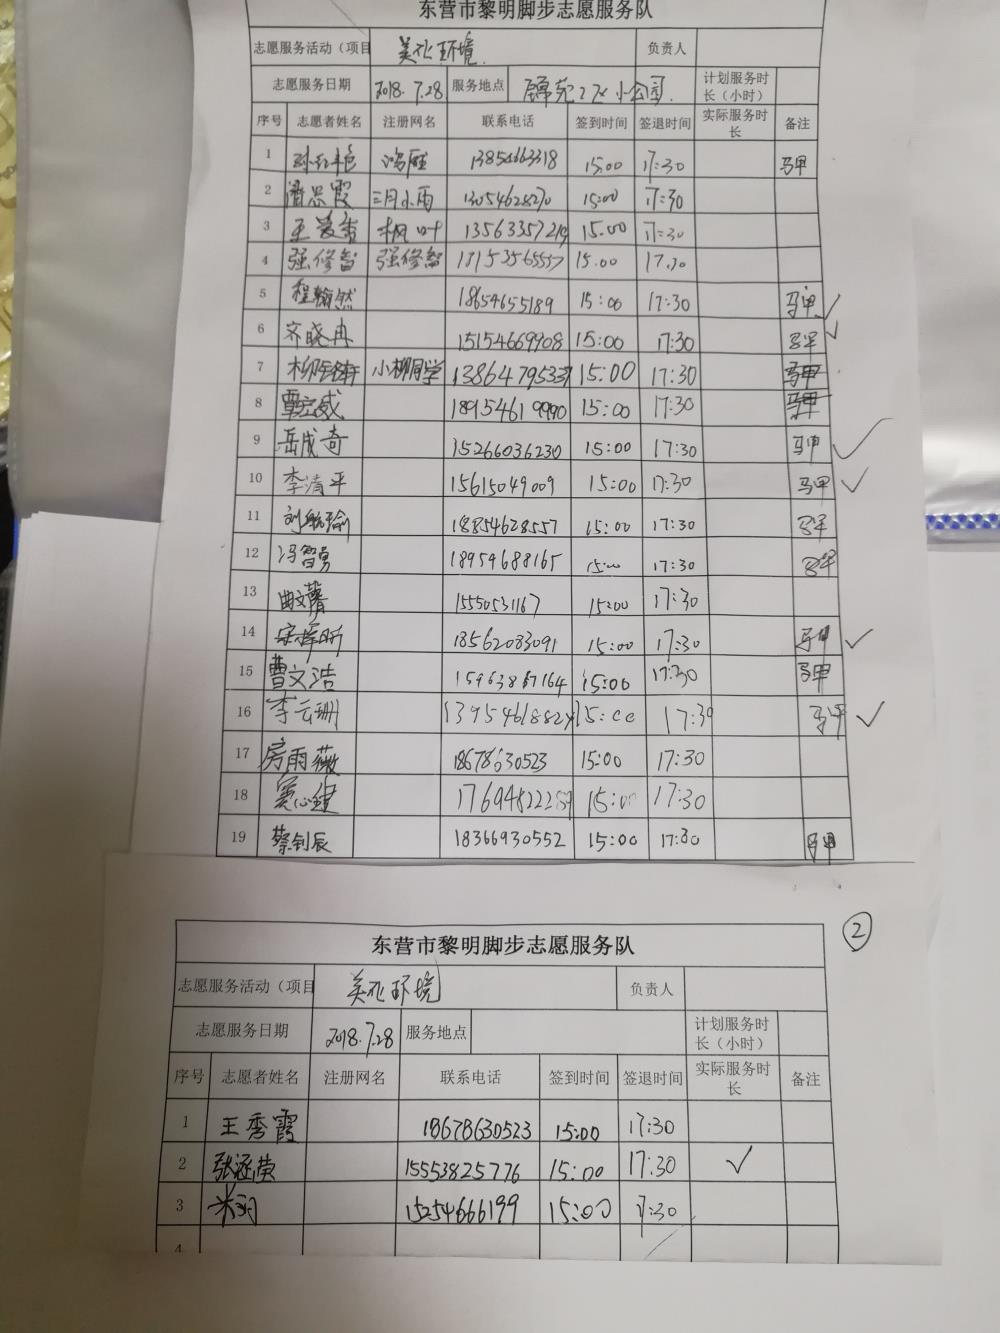 东营市黎明脚步志愿服务队
志愿服务活动（项目 美化环境 负责人
志愿服务日期 2018.7.28 服务地点 锦苑2区小公园 计划服务时长（小时）
序号 志愿者姓名 注册网名 联系电话 签到时间 签退时间 实际服务时长 备注
1 13854663318 15:00 17:30 马甲
2 潘思霞 三月小雨 13054628270 15:00 17:30
3 王爱香 枫叶 15.00 17:30
4 强修智 强修智 18153565557 15.00 17.30
5 程翰然 18654655189 15:00 17:30 马甲 ✓
6 齐晓冉 15154669908 15:00 17:30 马甲 ✓
7 小柳同学 13864795337 15:00 17:30 马甲
8 覃宏威 18954619990 15:00 17:30 马甲
9 岳成奇 15266036230 15:00 17:30 马甲 ✓
10 李清平 15615049009 15:00 17:30 马甲 ✓
11 刘航瑜 18854628557 15:00 17:30 马甲
12 冯智勇 18954688165 15:00 17:30 马甲
13 曲文馨 15550531167 15:00 17:30
14 18562083091 15:00 17:30 马甲 ✓
15 曹文浩 15963867164 15:00 17:30 马甲
16 李云珊 15:00 17:30 马甲 ✓
17 房雨薇 18678630523 15:00 17:30
18 15:00 17:30
19 蔡钊辰 18366930552 15:00 17:30 马甲
②
东营市黎明脚步志愿服务队
志愿服务活动（项目 美化环境 负责人
志愿服务日期 2018.7.28 服务地点 计划服务时长（小时）
序号 志愿者姓名 注册网名 联系电话 签到时间 签退时间 实际服务时长 备注
1 王秀霞 18678630523 15:00 17:30
2 张涵萤 15553825776 15:00 17:30 ✓
3 米玥 15254666199 15:00 17:30
4